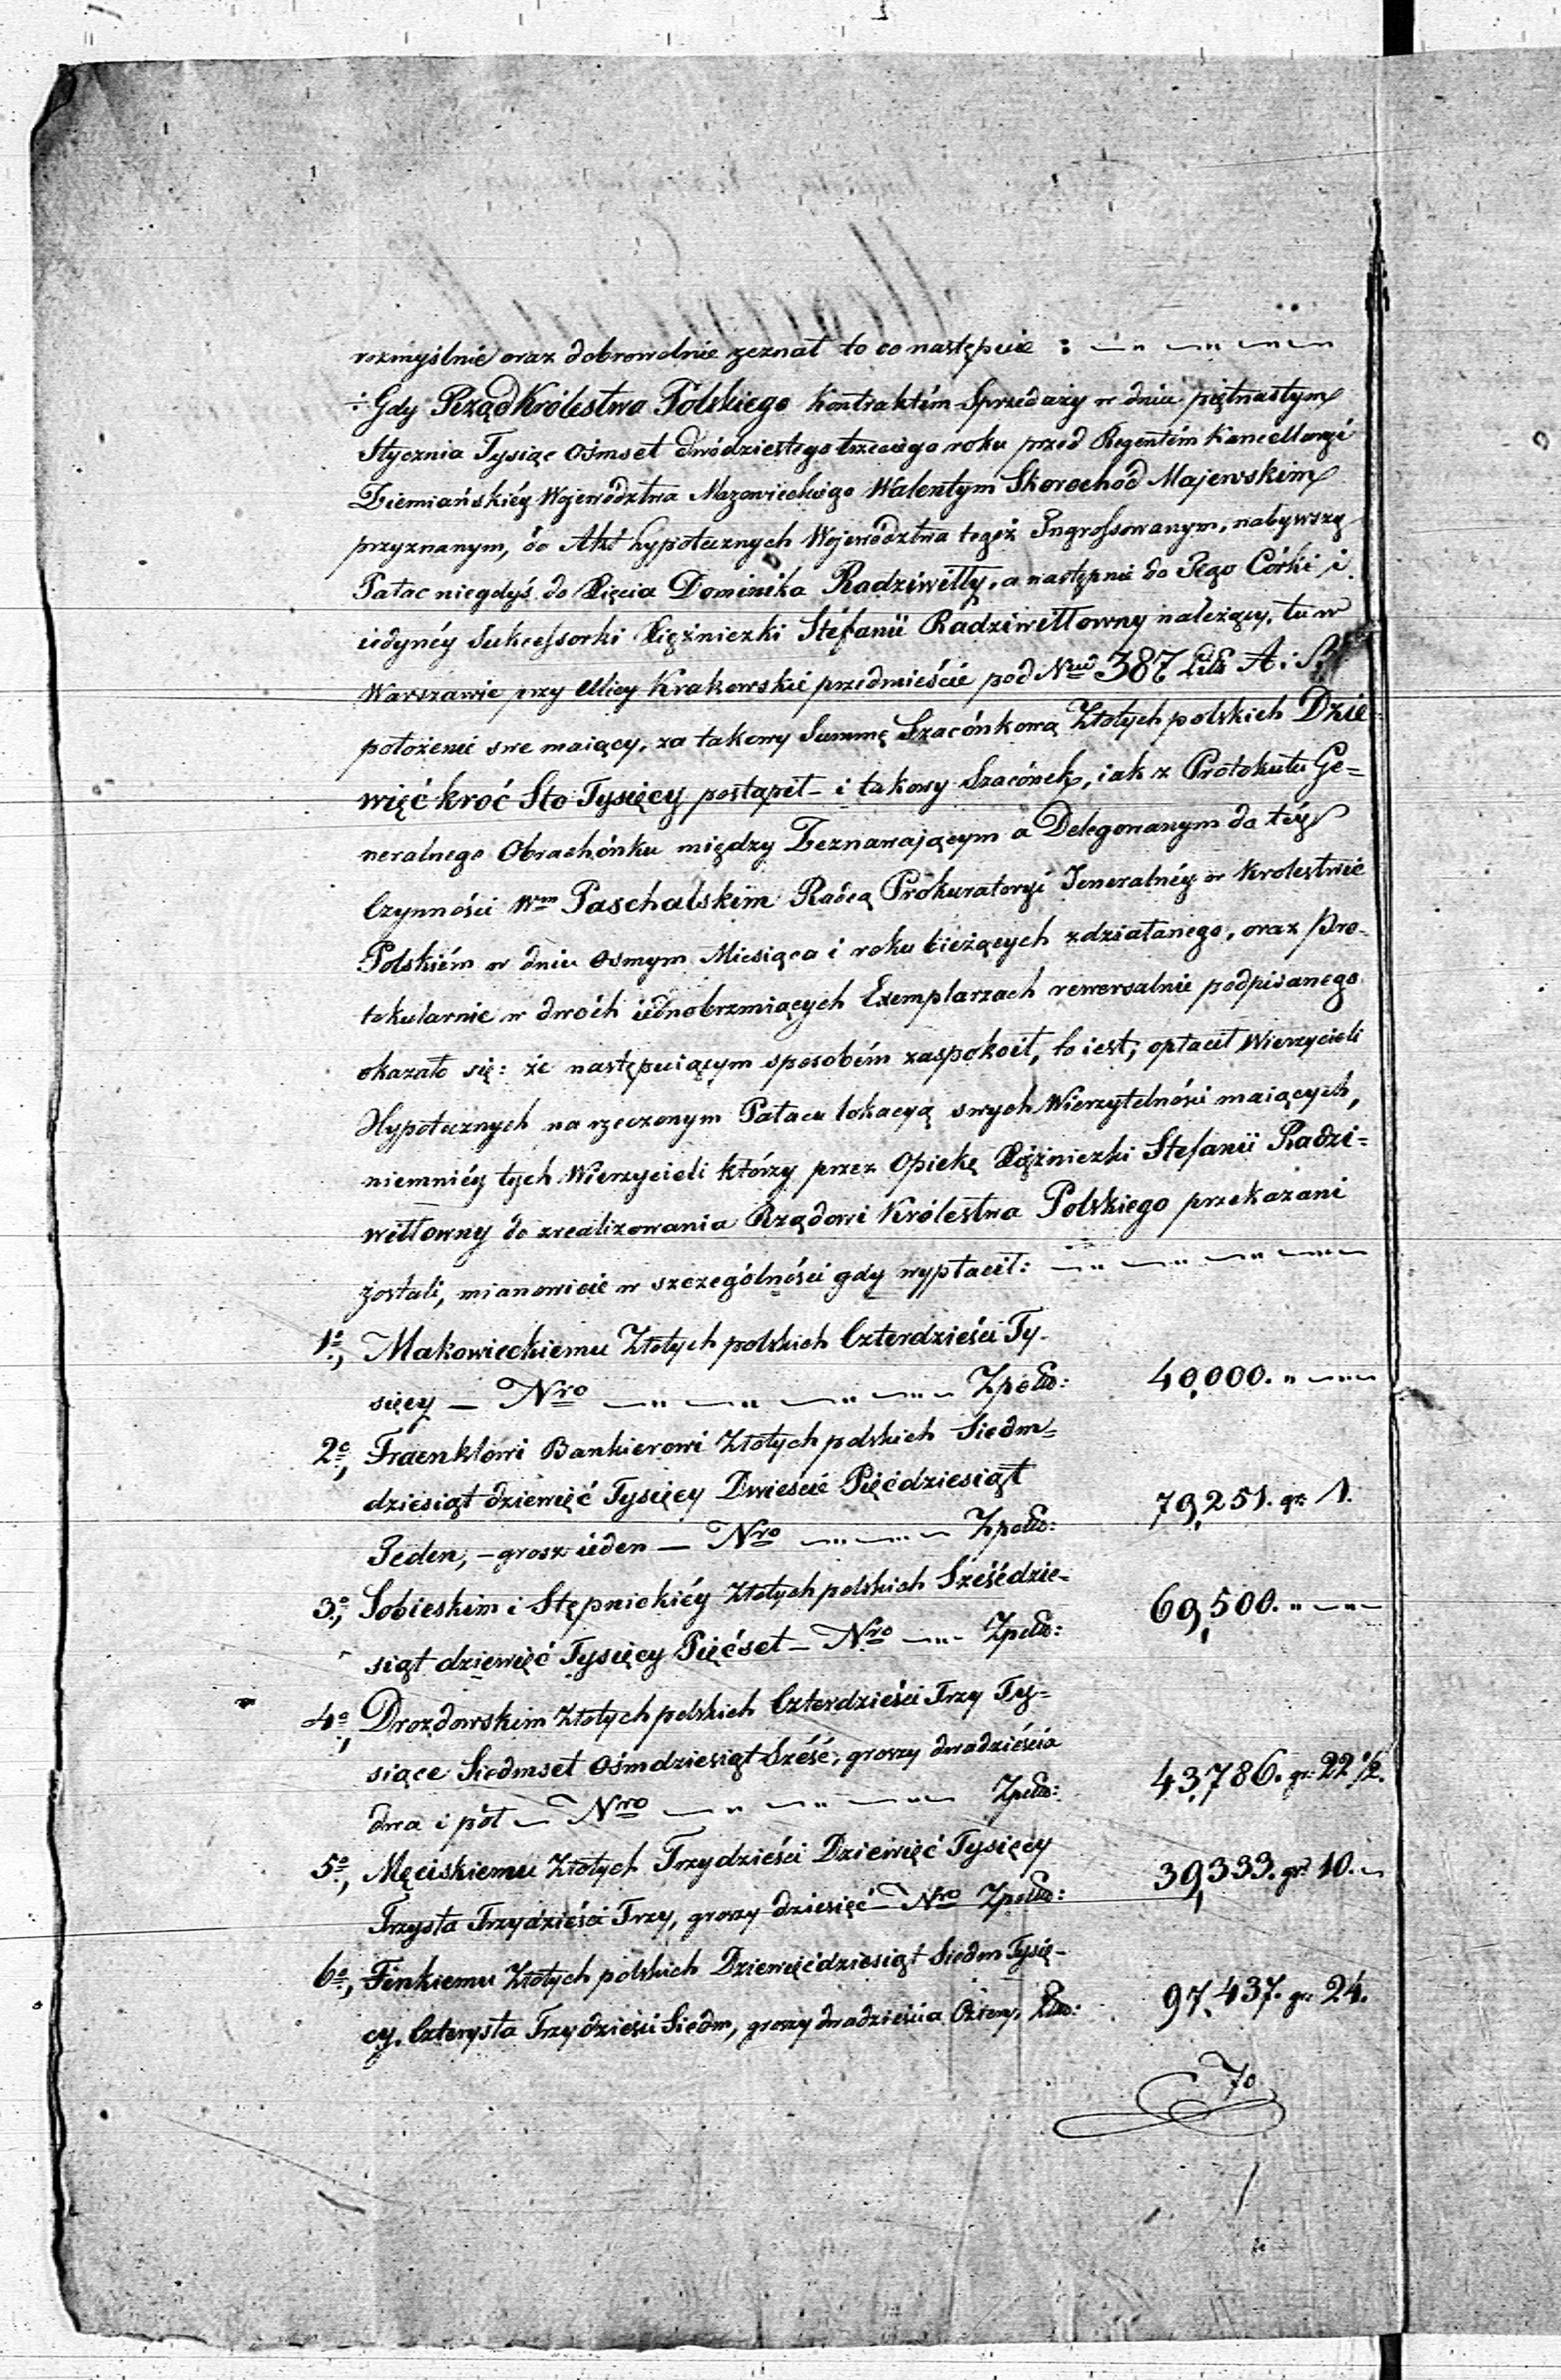 rozmyślnie oraz dobrowolnie zeznał to co następuie :
Gdy Rząd Królestwa Polskiego Kontraktém Sprzedaży w dniu piętnastym
Stycznia Tysiąc Ośmset dwódziestego trzeciego roku przed Regentém Kancellaryi
Ziemiańskiéy Województwa Mazowieckiego Walentym Skorochód Majewskim
przyznanym, do Akt hypotecznych Województwa tegoż Ingrossowanym, nabywszy
Pałac niegdyś do Xięcia Dominika Radziwiłły, a następnie do Jego Córki i
iedynéy Sukcessorki Xiężniczki Stéfanii Radziwiłłowny należący, tu w
Warszawie przy Ulicy Krakowskie przedmieście pod Nrem 387 Litt A i B
położenie swe maiący, za takowy Summę Szacónkową Złotych polskich Dzie-
więć kroć Sto Tysięcy postąpił – i takowy Szacónek, iak z Protokułu Ge=
neralnego Obrachónku między Zeznawaiącym a Delegowanym do téy
Czynności Wm Paschalskim Radcą Prokuratoryi Jeneralnéy w Krolestwie
Polskiém w dniu osmym Miesiąca i roku bieżących zdziałanego, oraz pro-
tokularnie w dwóch iednobrzmiących Exemplarzach rewersalnie podpisanego
okazało się: że następuiącym sposobém zaspokoił, to iest, opłacił Wierzycieli
Hypotecznych na rzeczonym Pałacu lokacyą swych Wierzytelności maiących,
niemniéy tych Wierzycieli którzy przez Opiekę Xiężniczki Stefanii Radzi=
wiłłowny do zrealizowania Rządowi Królestwa Polskiego przekazani
zostali, mianowicie w szczególności gdy wypłacił:
1o, Makowieckiemu Złotych polskich Czterdzieści Ty-
sięcy – Nro Zpolso: 40,000. „
2o, Fraenklowi Bankierowi Złotych polskich Siedm=
dziesiąt dziewięć Tysięcy Dwieście Pięćdziesiąt
Jeden, – grosz ieden – Nro Zpolso: 79,251. gr: 1.
3o, Sobieskim i Stępnickiéy Złotych polskich Sześćdzie-
siąt dziewięć Tysięcy Pięćset – Nro Zpolso: 69,500. „
4o, Drozdowskim Złotych polskich Czterdzieści Trzy Ty=
siące Siedmset Ośmdziesiąt Sześć, groszy dwadzieścia
dwa i pół – Nro Zpolso: 43,786. gr: 22 1/2.
5o, Męciskiemu Złotych Trzydzieści Dziewięć Tysięcy
Trzysta Trzydzieści Trzy, groszy dziesięć – Nro Zpolso: 39,333. gr: 10.
6o, Finkiemu Złotych polskich Dziewięćdziesiąt Siedm Tysię-
cy, Czterysta Trzydzieści Siedm, groszy dwadzieścia Cztery. 97,437. gr: 24.
7o